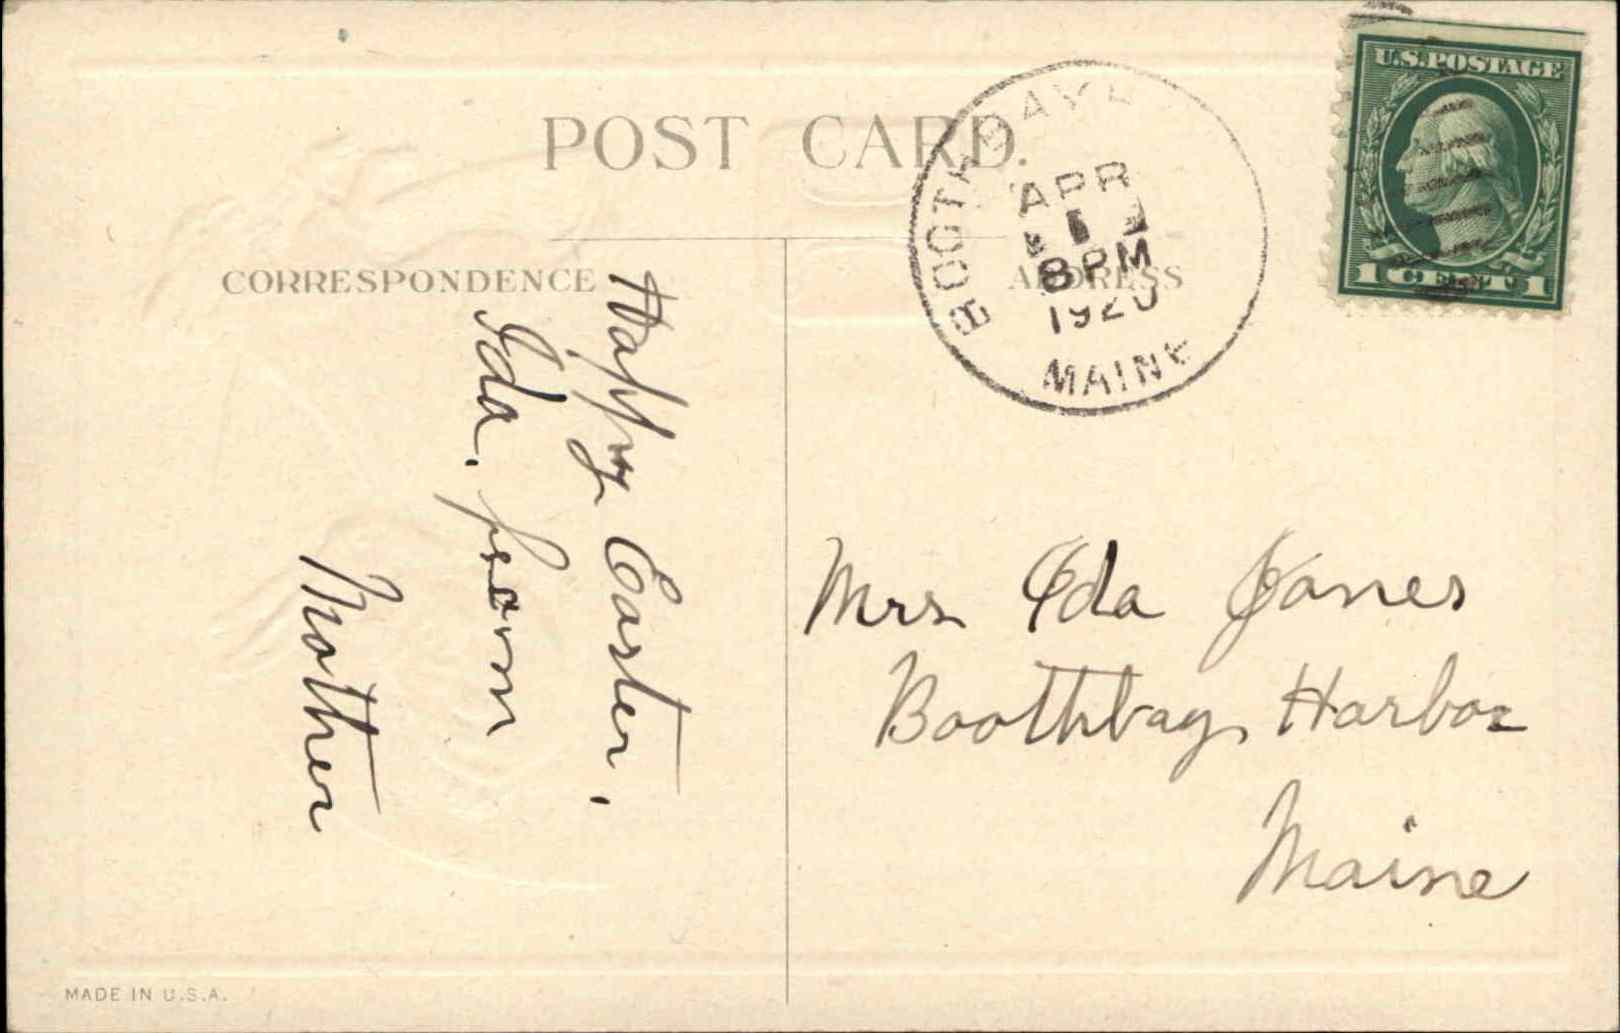 POST CARD.
CORRESPONDENCE
ADDRESS
Happy Easter,
Ida. from
Mother
BOOTHBAY
APR
1
8 PM
1920
MAINE
U.S. POSTAGE
1 CENT 1
Mrs Ida Jones
Boothbay Harbor
Maine
MADE IN U.S.A.